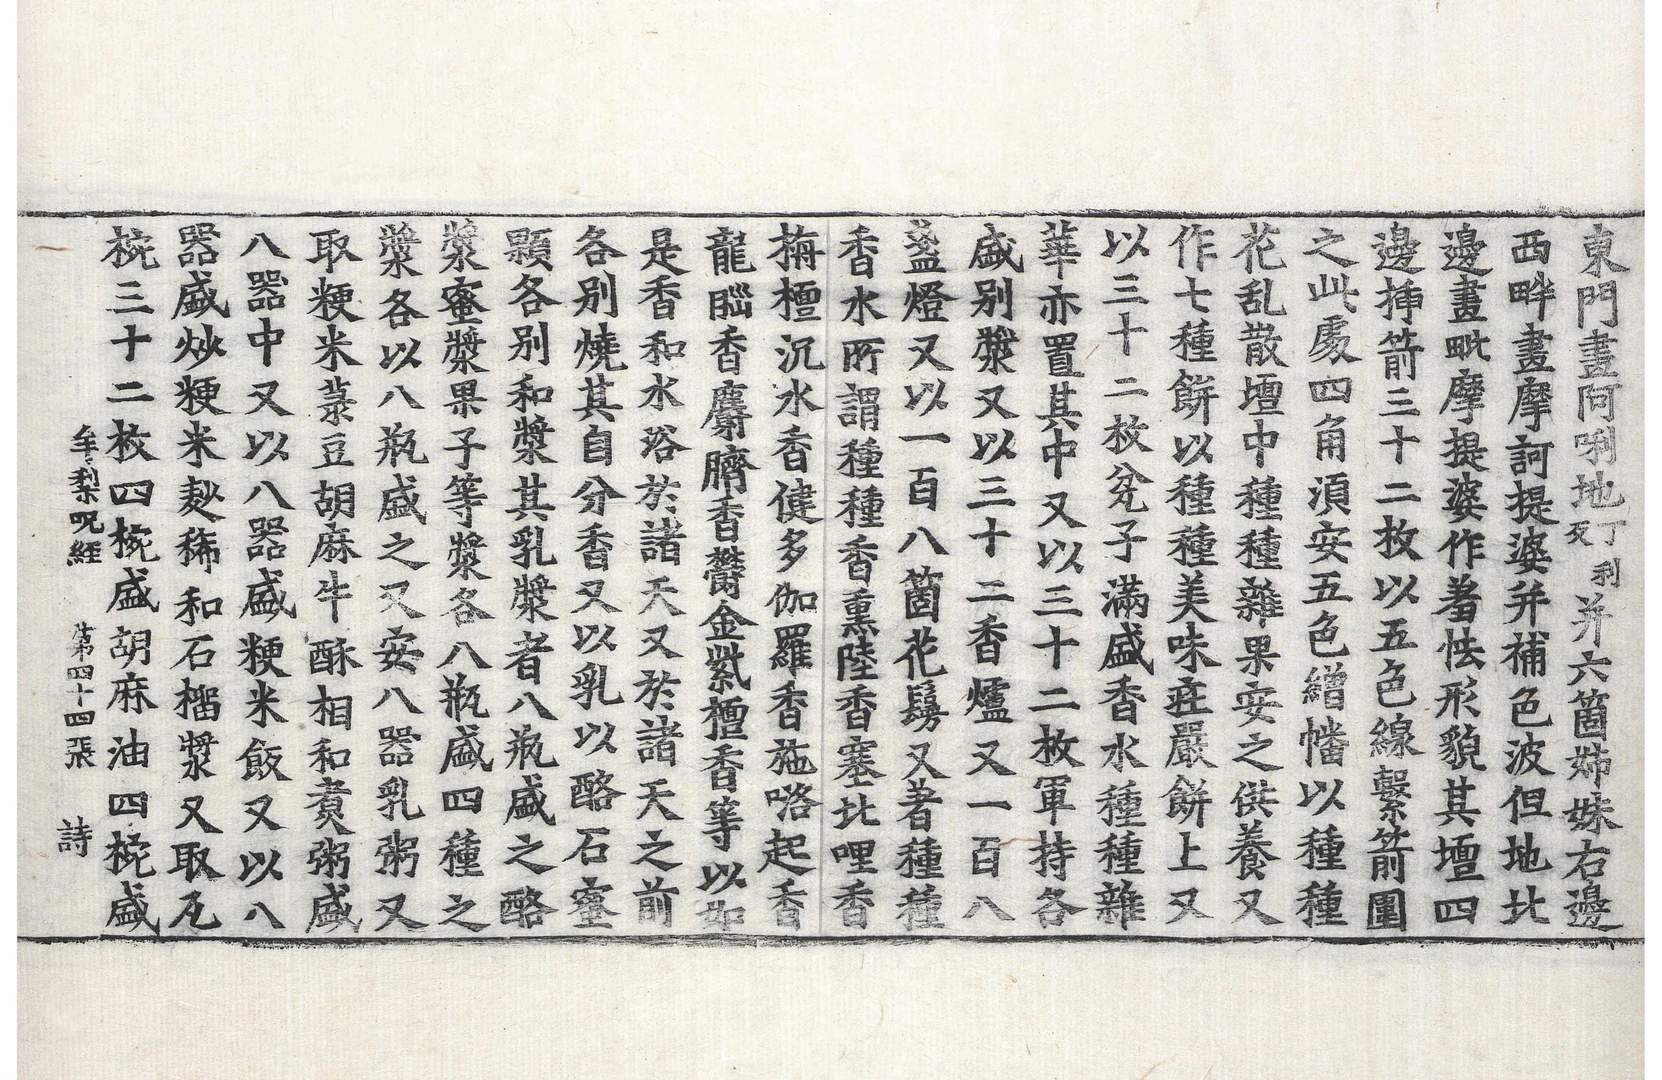 東門畫阿唎地丁利反并六箇姉妹右邊
西畔畫摩訶提婆并補色波但地北
邊畫毗摩提婆作著怯形貌其壇四
邊揷箭三十二枚以五色線繫箭圍
之此處四角湏安五色繒幡以種種
花乱散壇中種種雜果安之供養又
作七種餅以種種美味莊嚴餅上又
以三十二枚瓫子滿盛香水種種雜
華亦置其中又以三十二枚軍持各
盛別漿又以三十二香爐又一百八
盞燈又以一百八箇花鬘又著種種
香水所謂種種香熏陸香塞北哩香
栴檀沉水香健多伽羅香施咯起香
龍腦香麝臍香欝金紫檀香等以如
是香和水浴於諸天又於諸天之前
各別燒其自分香又以乳以酪石蜜
顆各別和漿其乳漿者八瓶盛之酪
漿蜜漿果子等漿各八瓶盛四種之
漿各以八瓶盛之又安八器乳粥又
取粳米菉豆胡麻牛酥相和煑粥盛
八器中又以八器盛粳米飯又以八
器盛炒粳米麨稀和石榴漿又取瓦
椀三十二枚四椀盛胡麻油四椀盛
牟梨呪經 第四十四張 詩